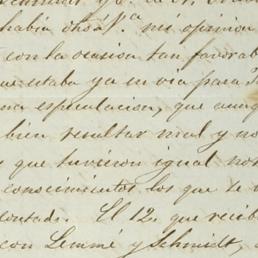 había
mi opinion
con la ocasion tan favorab
ue estaba ya en via para
na especulacion, que aunq
bien resultar mal y no
y que tuvieron igual no
conocimientos los que te
contado. El 12, que recib
con Lemmé y Schmidt,